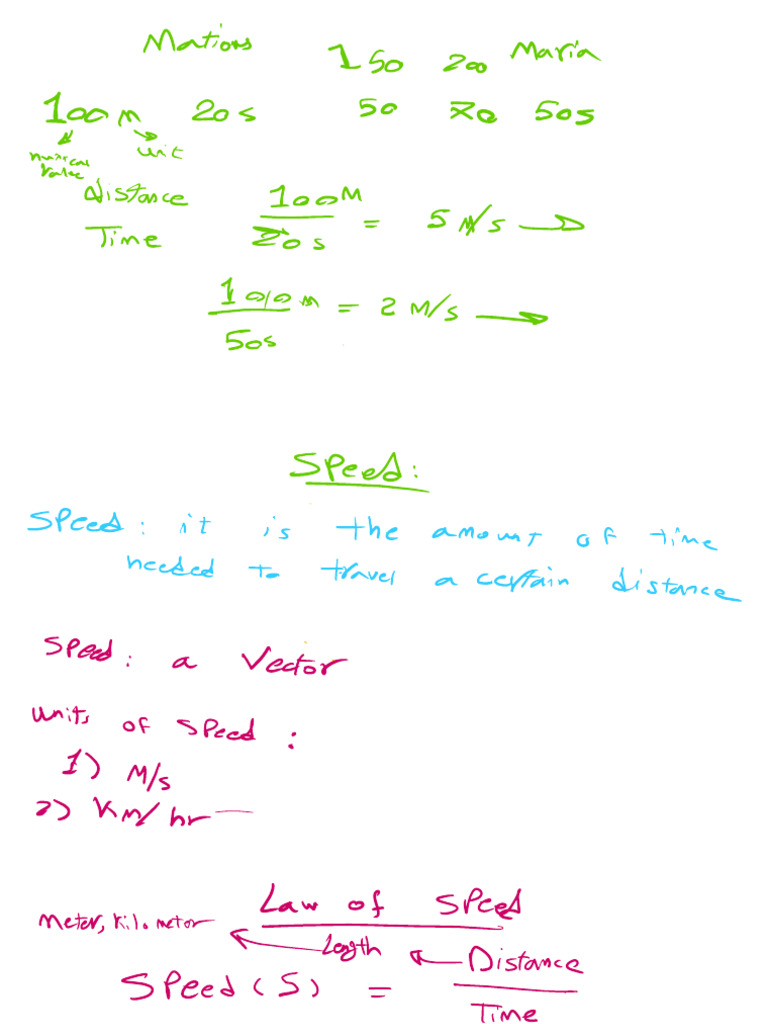 Mations 150 200 Maria
100m 20s 50 70 50s
numrcal unit
value
distance 100M
Time 20s = 5 M/s
100m = 2 M/s
50s
Speed:
Speed: it is the amount of time
needed to travel a certain distance
Speed: a Vector
units of speed:
1) M/s
2) KM/hr
Law of Speed
Meter, Kilometor
Length
Distance
Speed (S) =
Time